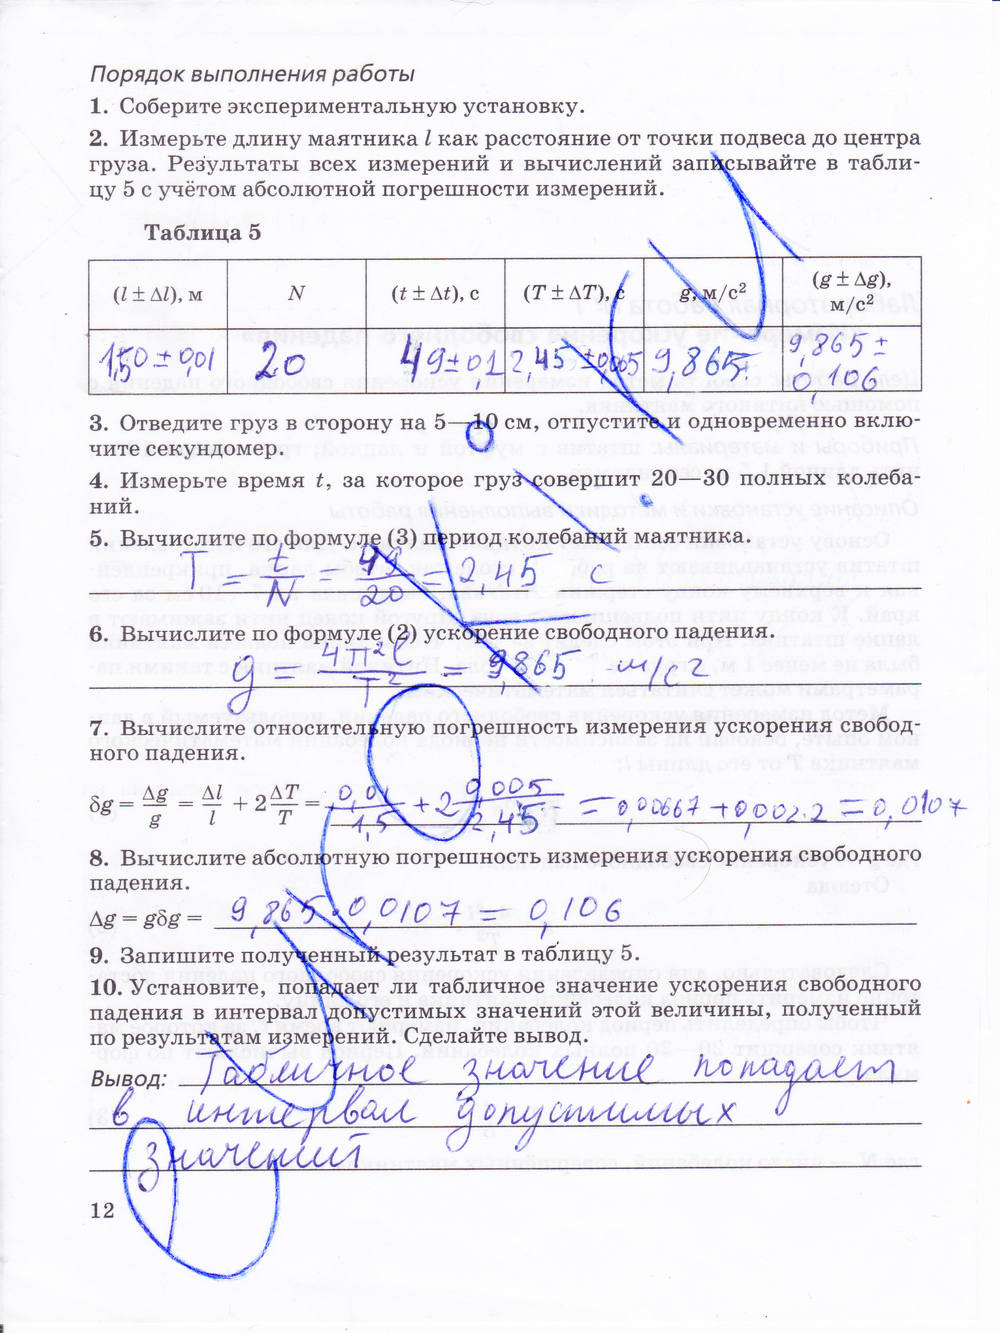 Порядок выполнения работы
1. Соберите экспериментальную установку.
2. Измерьте длину маятника l как расстояние от точки подвеса до центра
груза. Результаты всех измерений и вычислений записывайте в табли-
цу 5 с учётом абсолютной погрешности измерений.
Таблица 5
(l ± Δl), м N (t ± Δt), с (T ± ΔT), с g, м/с² (g ± Δg), м/с²
1,50 ± 0,01 20 49 ± 0,1 2,45 ± 0,005 9,865 9,865 ± 0,106
3. Отведите груз в сторону на 5—10 см, отпустите и одновременно вклю-
чите секундомер.
4. Измерьте время t, за которое груз совершит 20—30 полных колеба-
ний.
5. Вычислите по формуле (3) период колебаний маятника.
T = t/N = 49/20 = 2,45 с
6. Вычислите по формуле (2) ускорение свободного падения.
g = 4π²l/T² = 9,865 м/с²
7. Вычислите относительную погрешность измерения ускорения свобод-
ного падения.
δg = Δg/g = Δl/l + 2ΔT/T = 0,01/1,5 + 2 0,005/2,45 = 0,00667 + 0,002.2 = 0,0107
8. Вычислите абсолютную погрешность измерения ускорения свободного
падения.
Δg = gδg = 9,865 · 0,0107 = 0,106
9. Запишите полученный результат в таблицу 5.
10. Установите, попадает ли табличное значение ускорения свободного
падения в интервал допустимых значений этой величины, полученный
по результатам измерений. Сделайте вывод.
Вывод: Табличное значение попадает
в интервал допустимых
значений
12